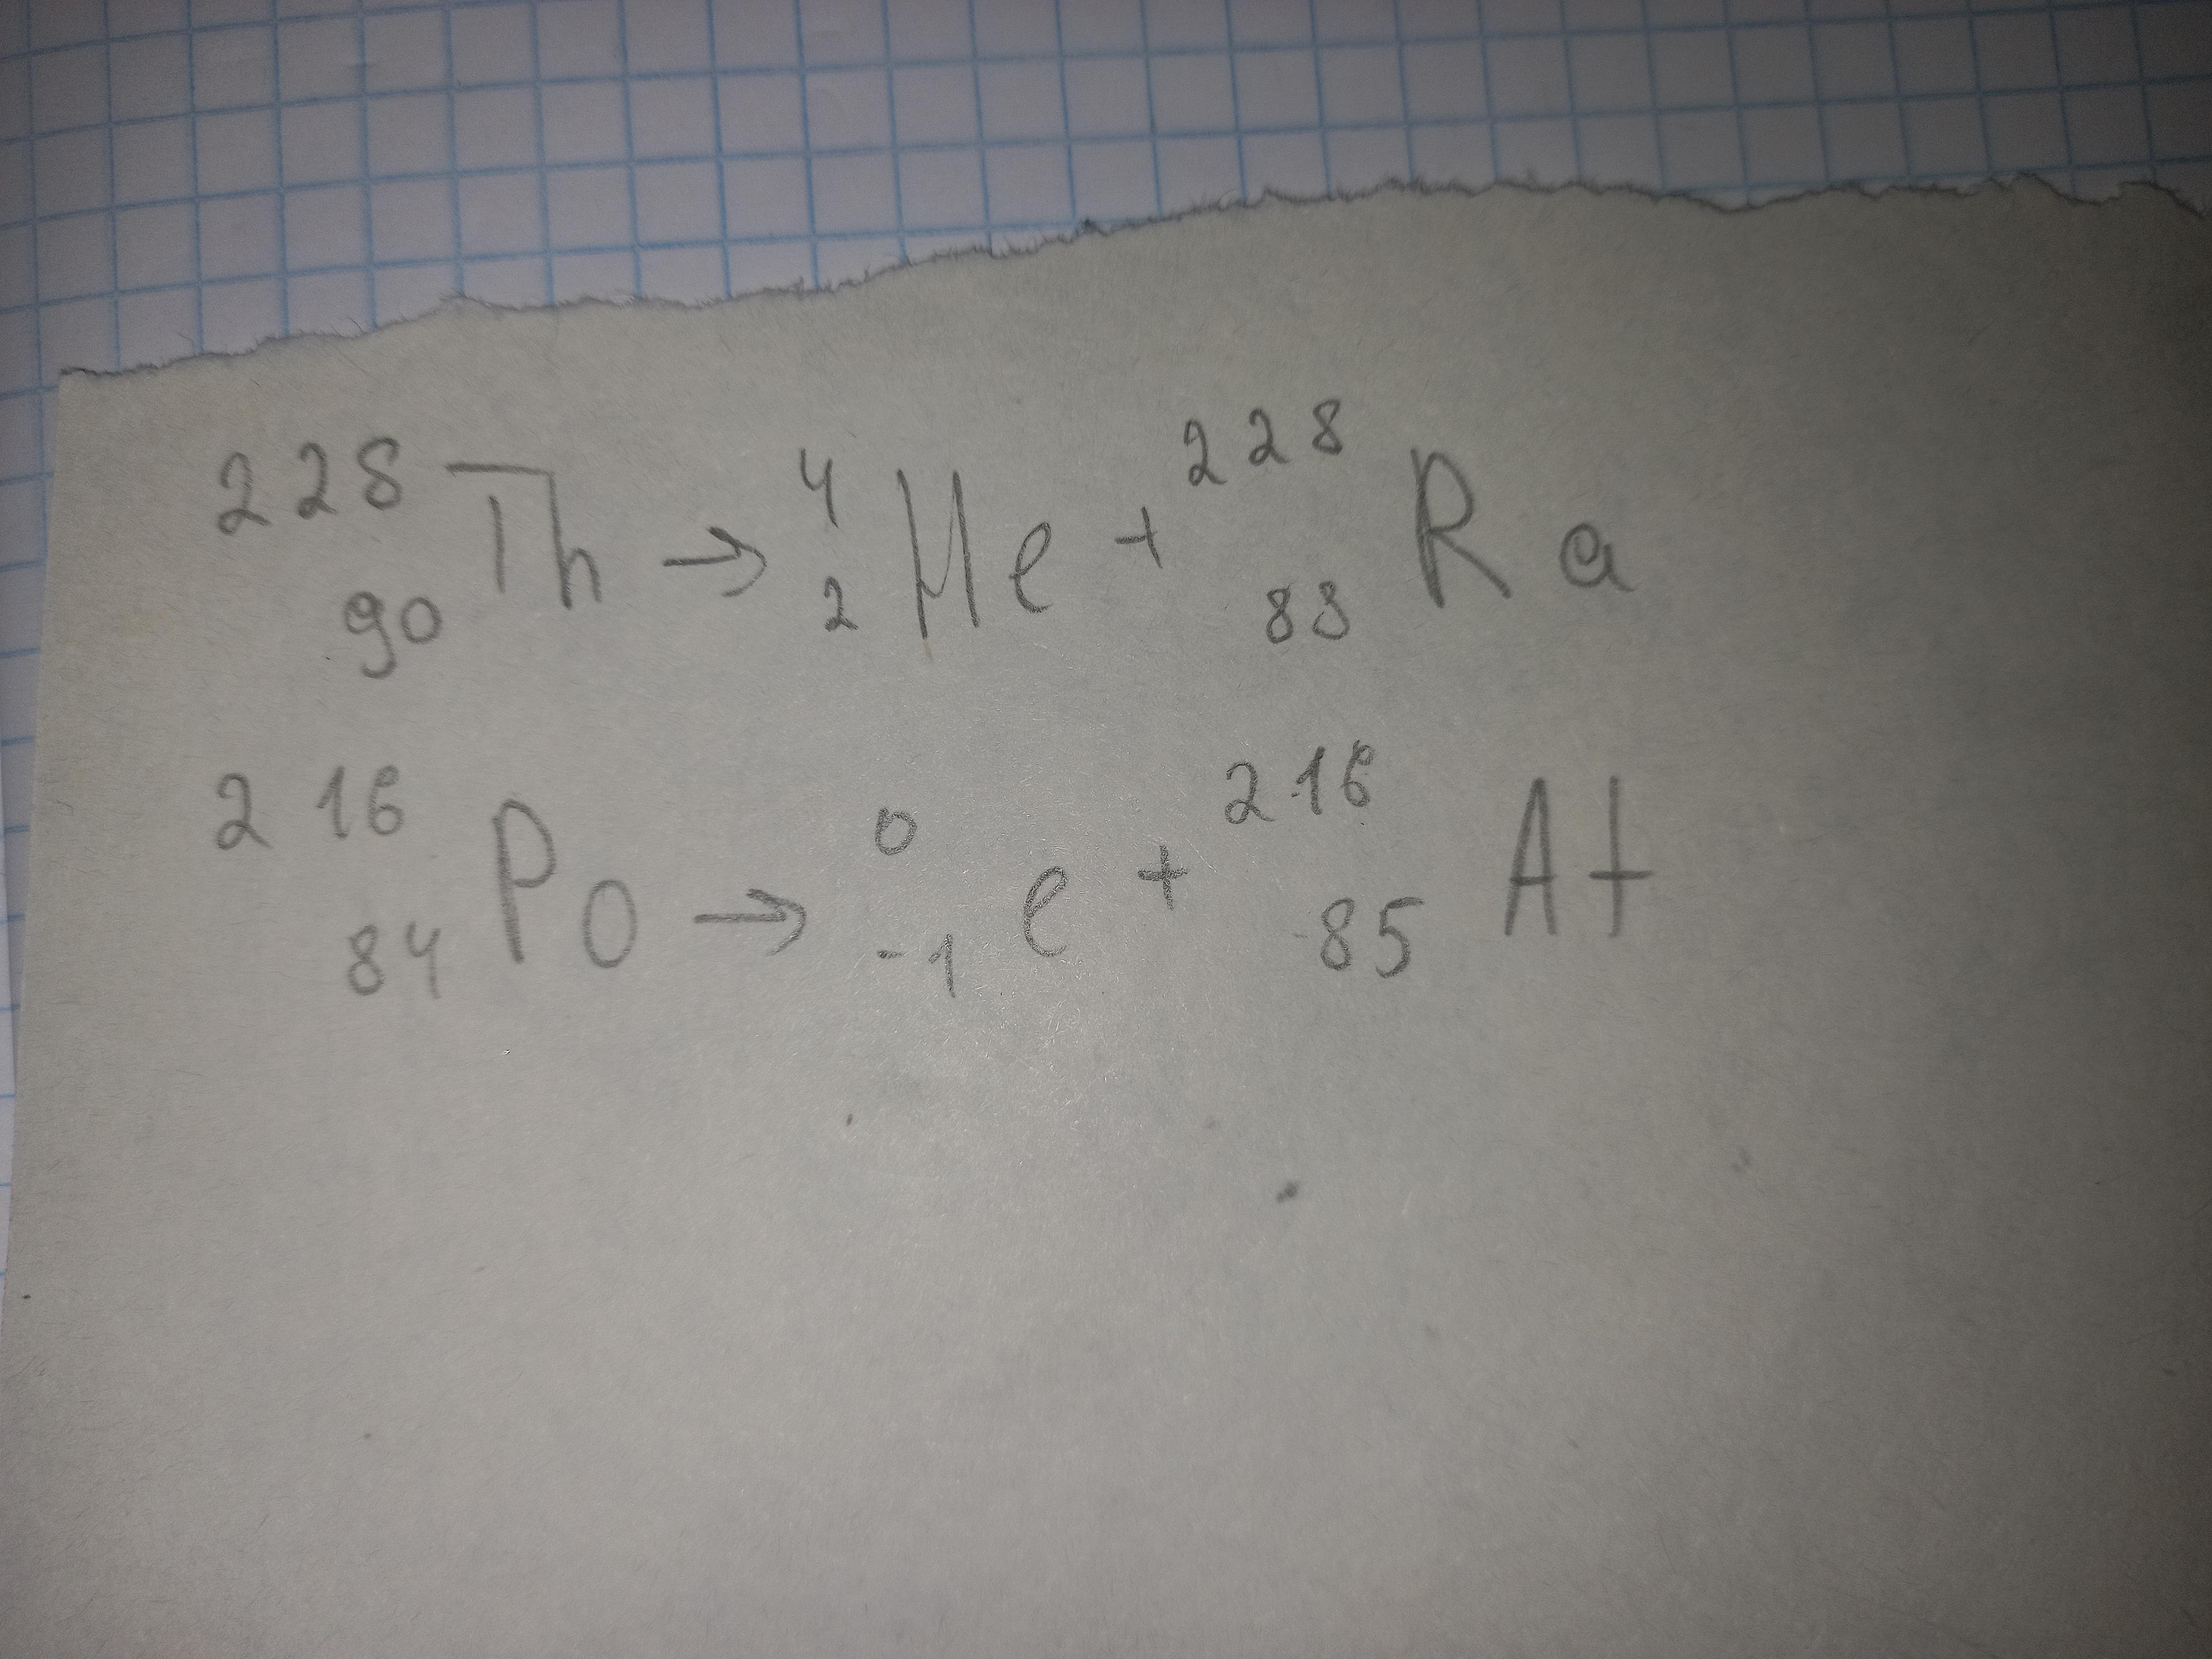 ²²⁸₉₀Th → ⁴₂He + ²²⁸₈₈Ra
²¹⁶₈₄Po → ⁰₋₁e + ²¹⁶₈₅At